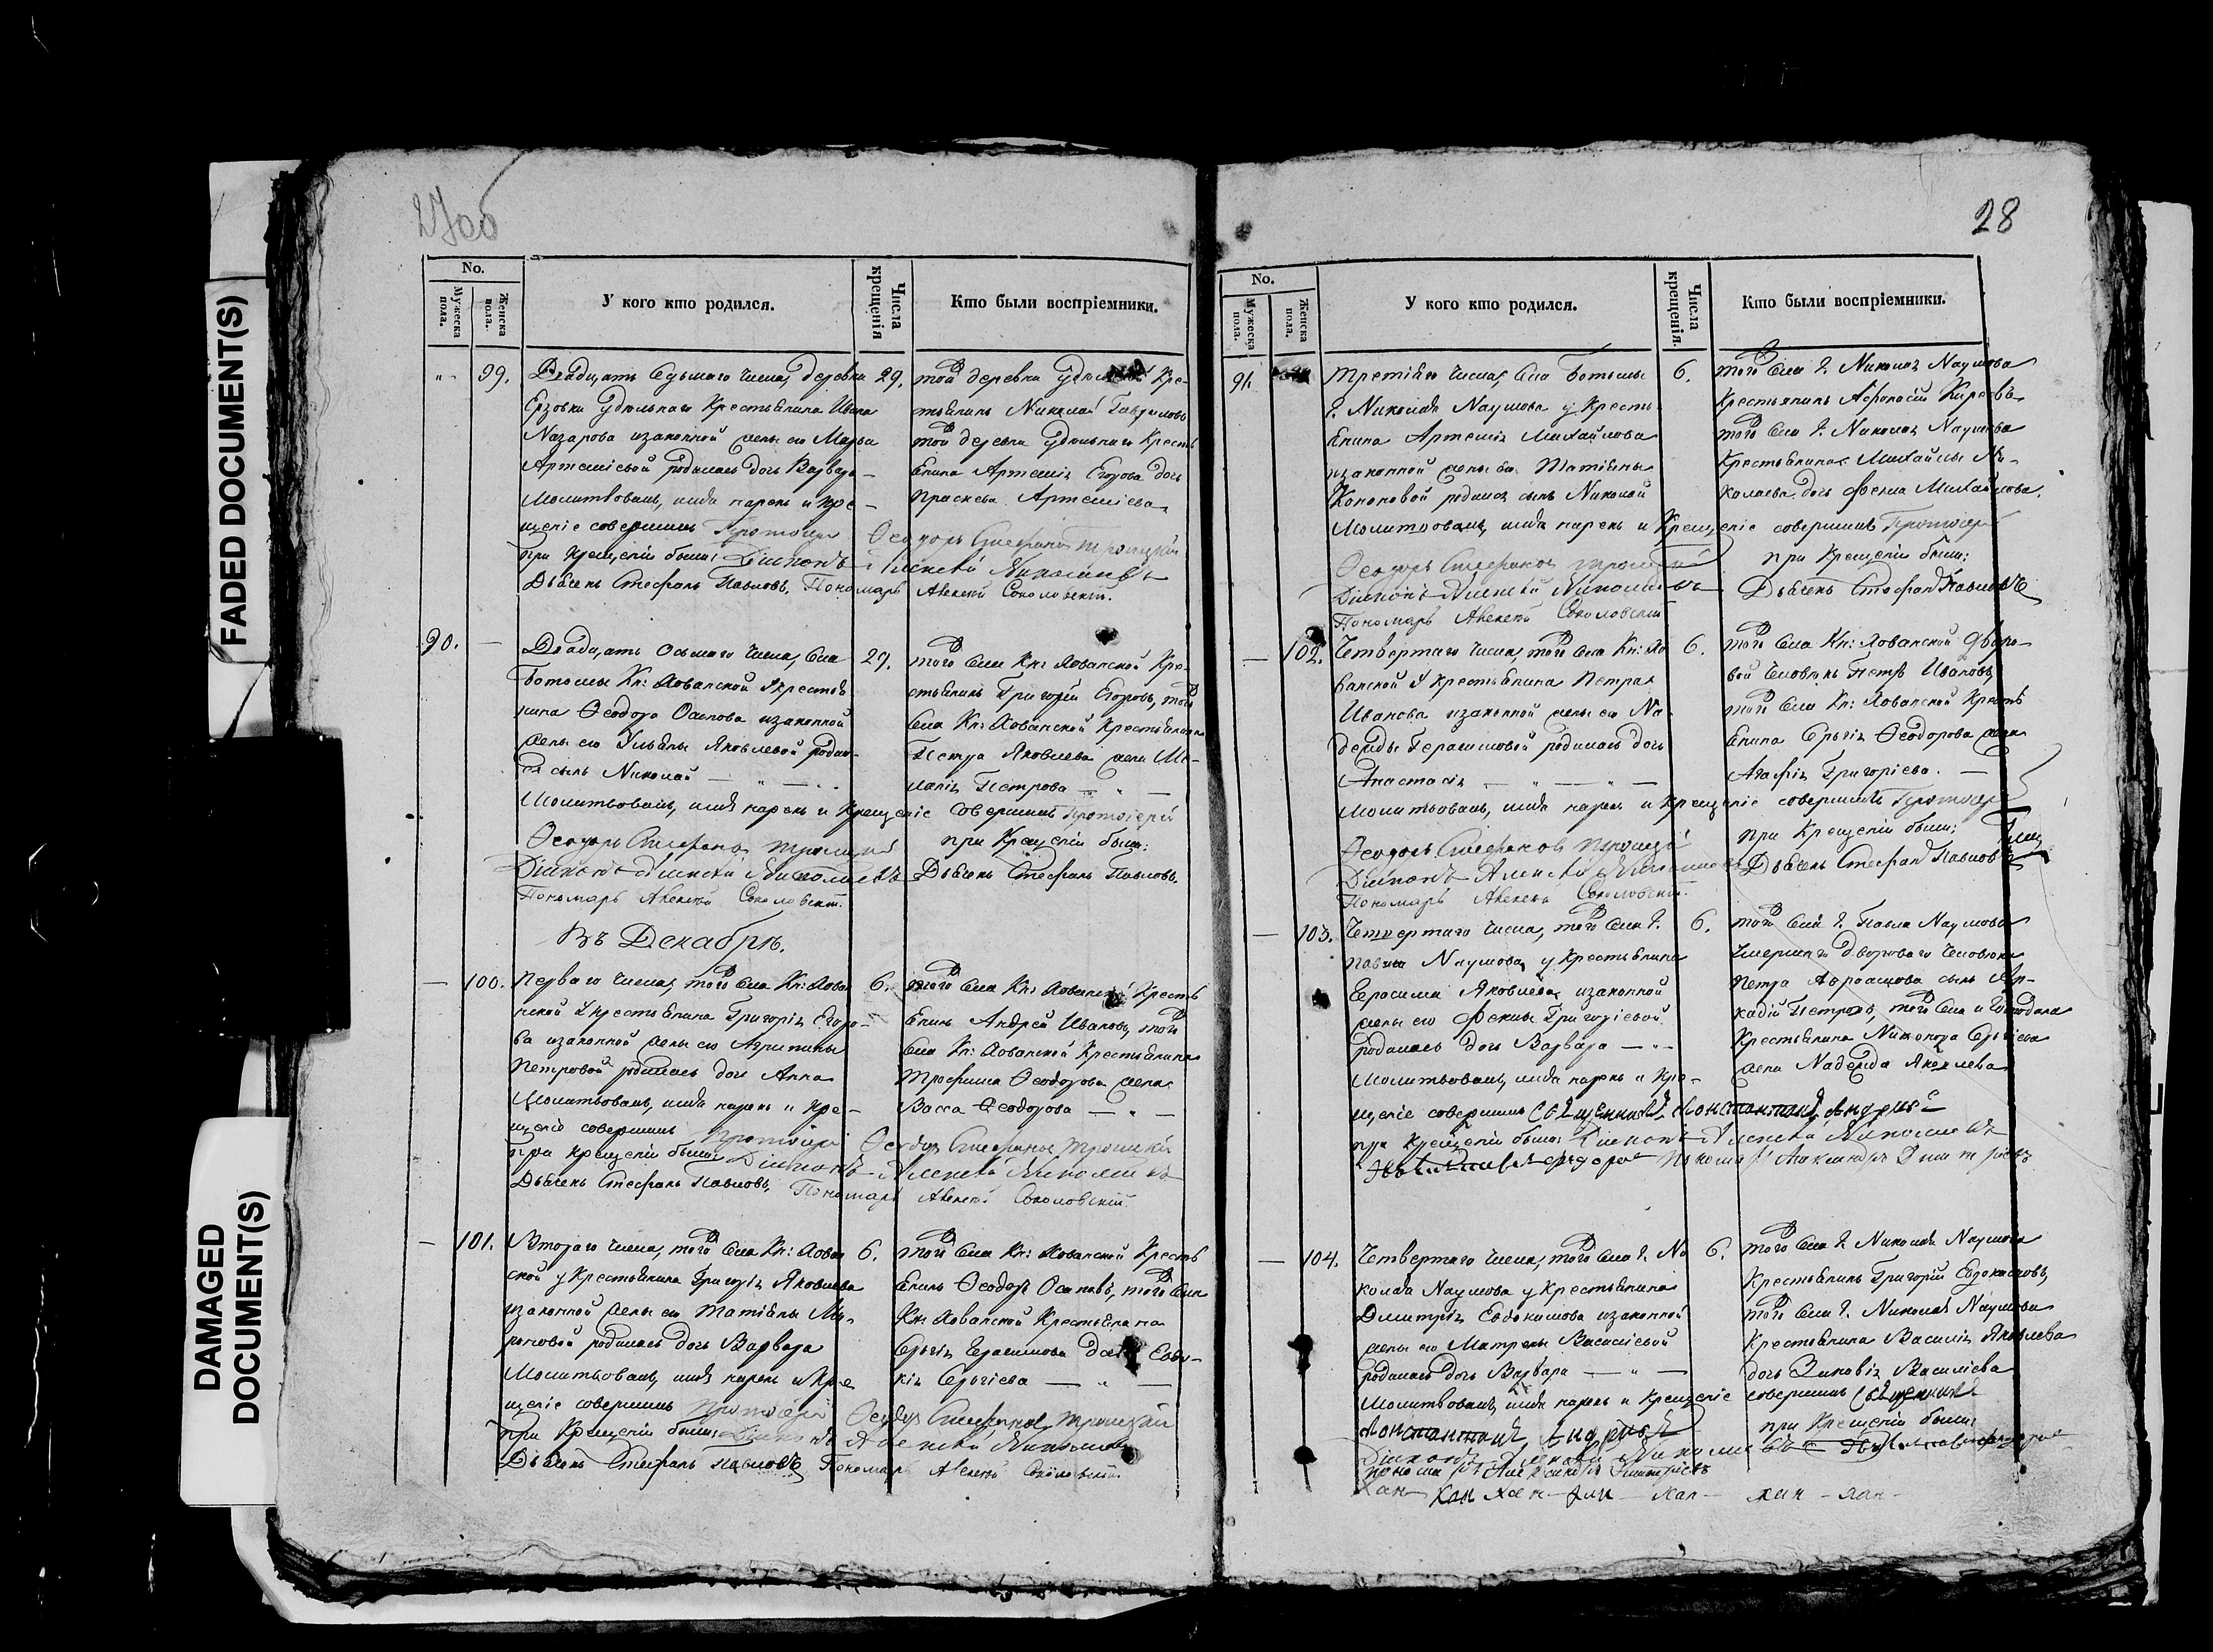 FADED DOCUMENT(S)
DAMAGED
DOCUMENT(S)
27об
No.
Мужеска пола.
Женска пола.
У кого кто родился.
Числа крещенія
Кто были воспріемники.
99.
Двадцать Седьмаго числа, деревни
Ерзовки удѣльнаго Крестьянина Ивана
Назарова изаконной жены его Марьи
Артеміевой родилась дочь Варвара
Молитвовалъ, имя нарекъ и кре-
щеніе совершилъ Протоіерей Ѳеодоръ Стефановъ Троицкій
при крещеніи были: Діаконъ Алексѣй Николаевъ
Дьячекъ Стефанъ Павловъ, Пономарь Алексѣй Соколовскій.
29.
той деревни удѣльной Кре-
стьянинъ Николай Гавриловъ
той деревни удѣльнаго Кресть
янина Артемія Егорова дочь
Праскева Артеміева
90.
Двадцать Осьмаго числа, Села
Ботьмы Кн: Хованской у крестья
нина Ѳеодора Осипова изаконной
жены его Ульяны Яковлевой родил-
ся сынъ Николай
Молитвовалъ, имя нарекъ и Крещеніе совершилъ Протоіерей
Ѳеодоръ Стефановъ Троицкій при Крещеніи были:
Діаконъ Алексѣй Николаевъ Дьячекъ Стефанъ Павловъ,
Пономарь Алексѣй Соколовскій.
29.
того Села Кн: Хованской Кре-
стьянинъ Григорій Егоровъ, того
Села Кн: Хованской Крестьянина
Петра Яковлева жена Ме-
ланія Петрова
Въ Декабрѣ.
100.
Перваго числа, того Села Кн: Хован
нской у крестьянина Григорія Егоро-
ва изаконной жены его Агрипины
Петровой родилась дочь Анна
Молитвовалъ, имя нарекъ и кре-
щеніе совершилъ Протоіерей Ѳеодоръ Стефановъ Троицкій
при крещеніи были: Діаконъ Алексѣй Николаевъ
Дьячекъ Стефанъ Павловъ, Пономарь Алексѣй Соколовскій.
6.
того Села Кн: Хованской Кресть
янинъ Андрей Ивановъ, того
Села Кн: Хованской Крестьянина
Трофима Ѳеодорова жена
Васса Ѳеодорова
101.
Втораго числа, того Села Кн: Хован
ской у Крестьянина Григорія Яковлева
изаконной жены его Татіяны Ми-
роновой родилась дочь Варвара
Молитвовалъ, имя нарекъ и Кре
щеніе совершилъ Протоіерей Ѳеодоръ Стефановъ Троицкій
при Крещеніи были: Діаконъ Алексѣй Николаевъ
Дьячекъ Стефанъ Павловъ Пономарь Алексѣй Соколовскій.
6.
того Села Кн: Хованской Кресть
янинъ Ѳеодоръ Осиповъ, того Села
Кн: Хованской Крестьянина
Сергія Герасимова дочь
Сергіева
28
No.
Мужеска пола.
Женска пола.
У кого кто родился.
Числа крещенія.
Кто были воспріемники.
91.
Третіяго числа, Села Ботьмы
Г. Николая Наумова у Кресть
янина Артемія Михайлова
изаконной жены его Татіяны
Кононовой родился сынъ Николай
Молитвовалъ, имя нарекъ и Крещеніе совершилъ Протоіерей
Ѳеодоръ Стефановъ Троицкій при Крещеніи были:
Діаконъ Алексѣй Николаевъ Дьячекъ Стефанъ Павловъ
Пономарь Алексѣй Соколовскій
6.
того Села Г. Николая Наумова
Крестьянинъ Афонасій Киреевъ
того Села Г. Николая Наумова
Крестьянина Михайлы Ни-
колаева дочь Фекла Михайлова.
102.
Четвертаго числа, того Села Кн: Хо
ванской у Крестьянина Петра
Иванова изаконной жены его На
дежды Герасимовой родилась дочь
Анастасія
Молитвовалъ, имя нарекъ и Крещеніе совершилъ Протоіерей
Ѳеодоръ Стефановъ Троицкій при Крещеніи были:
Діаконъ Алексѣй Николаевъ Дьячекъ Стефанъ Павловъ
Пономарь Алексѣй Соколовскій.
6.
того Села Кн: Хованской дворо-
вой человѣкъ Петръ Ивановъ,
того Села Кн: Хованской Кресть
янина Сергія Ѳеодорова жена
Агафія Григоріева.
103.
Четвертаго числа, того Села Г.
Павла Наумова, у Крестьянина
Герасима Яковлева, изаконной
жены его Феклы Григоріевой
родилась дочь Варвара
Молитвовалъ, имя нарекъ и Кре-
щеніе совершилъ Священникъ Константинъ Андреевъ
при Крещеніи были: Діаконъ Алексѣй Николаевъ
Пономарь Александръ Димитріевъ
6.
того Села Г. Павла Наумова
умершаго двороваго человѣка
Петра Авраамова сынъ Ар-
кадій Петровъ, того Села и Господина
Крестьянина Никонора Сергіева
жена Надежда Яковлева
104.
Четвертаго числа, того Села Г. Ни
колая Наумова у Крестьянина
Дмитрія Евдокимова изаконной
жены его Матрены Василіевой
родилась дочь Варвара
Молитвовалъ, имя нарекъ и Крещеніе совершилъ Священникъ
Константинъ Андреевъ при Крещеніи были:
Діаконъ Алексѣй Николаевъ
пономарь Александръ Димитріевъ
6.
того Села Г. Николая Наумова
Крестьянинъ Григорій Евдокимовъ,
того Села Г. Николая Наумова
Крестьянина Василія Яковлева
дочь Зиновія Василіева